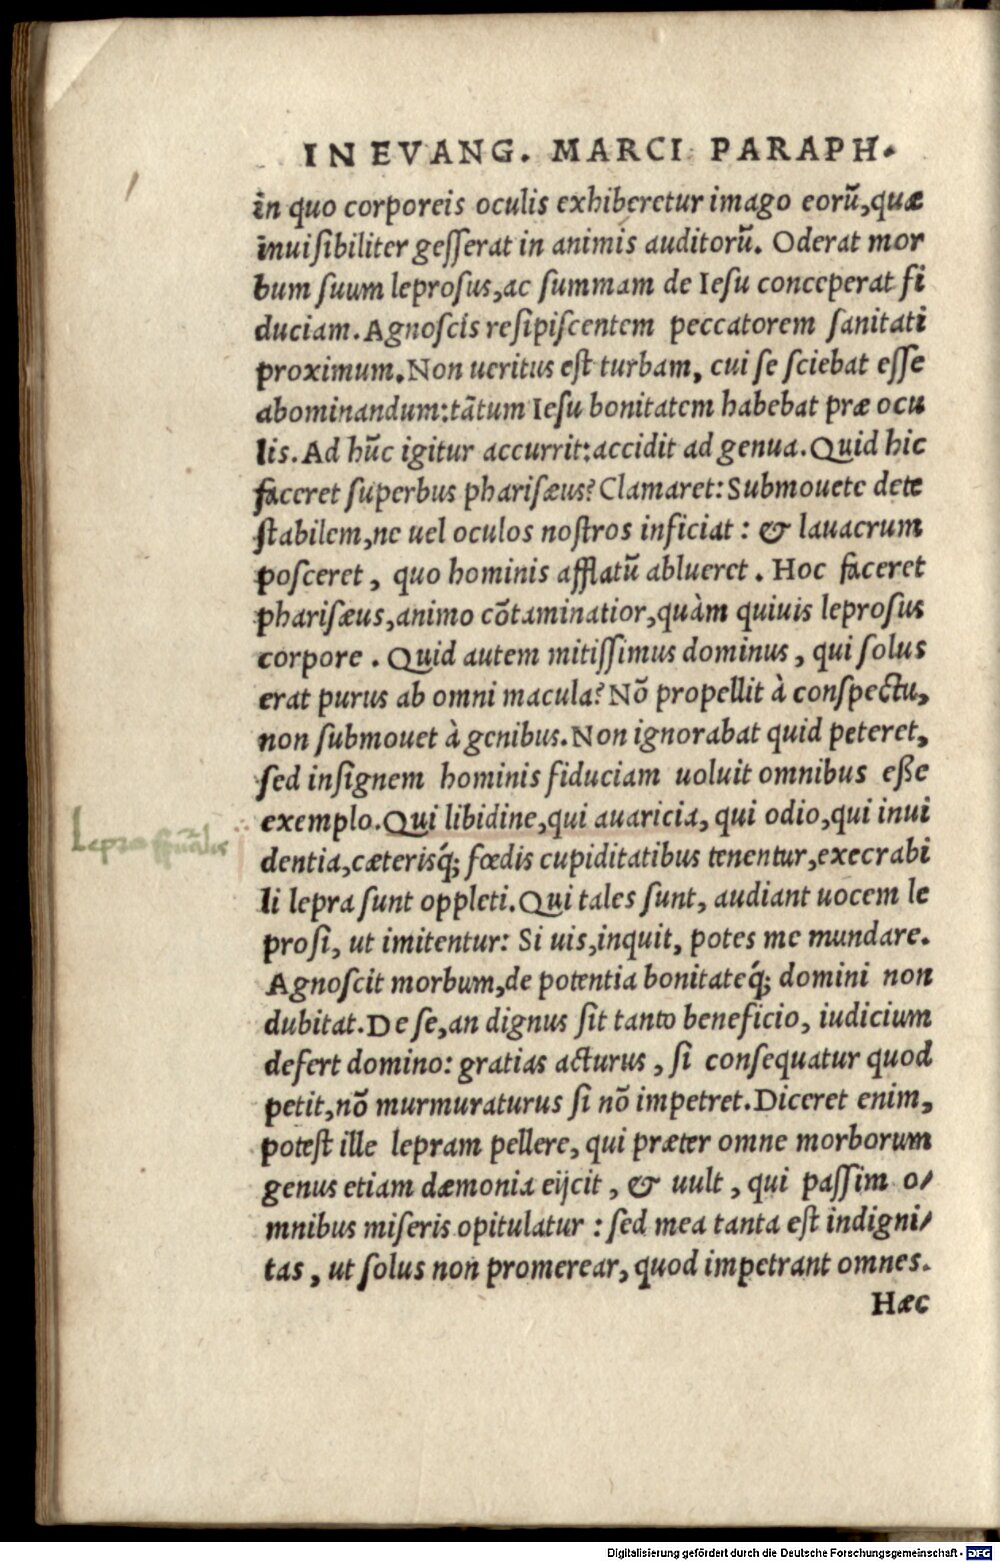 IN EVANG. MARCI PARAPH.
in quo corporeis oculis exhiberetur imago eorũ,quæ
inuisibiliter gesserat in animis auditorũ. Oderat mor
bum suum leprosus,ac summam de Iesu conceperat fi
duciam. Agnoscis resipiscentem peccatorem sanitati
proximum. Non ueritus est turbam, cui se sciebat esse
abominandum:tãtum Iesu bonitatem habebat præ ocu
lis. Ad hũc igitur accurrit:accidit ad genua. Quid hic
faceret superbus pharisæus? Clamaret: Submouete dete
stabilem,ne uel oculos nostros inficiat : & lauacrum
posceret, quo hominis afflatũ ablueret. Hoc faceret
pharisæus,animo cõtaminatior,quàm quiuis leprosus
corpore. Quid autem mitissimus dominus, qui solus
erat purus ab omni macula? Nõ propellit à conspectu,
non submouet à genibus. Non ignorabat quid peteret,
sed insignem hominis fiduciam uoluit omnibus eße
exemplo. Qui libidine,qui auaricia, qui odio,qui inui
Lepra spũalis
dentia,cæterisq́; fœdis cupiditatibus tenentur,execrabi
li lepra sunt oppleti. Qui tales sunt, audiant uocem le
prosi, ut imitentur: Si uis,inquit, potes me mundare.
Agnoscit morbum,de potentia bonitateq́; domini non
dubitat. De se,an dignus sit tanto beneficio, iudicium
defert domino: gratias acturus, si consequatur quod
petit,nõ murmuraturus si nõ impetret. Diceret enim,
potest ille lepram pellere, qui præter omne morborum
genus etiam dæmonia eijcit, & uult, qui passim o/
mnibus miseris opitulatur : sed mea tanta est indigni/
tas, ut solus non promerear, quod impetrant omnes.
Hæc
Digitalisierung gefördert durch die Deutsche Forschungsgemeinschaft - DFG